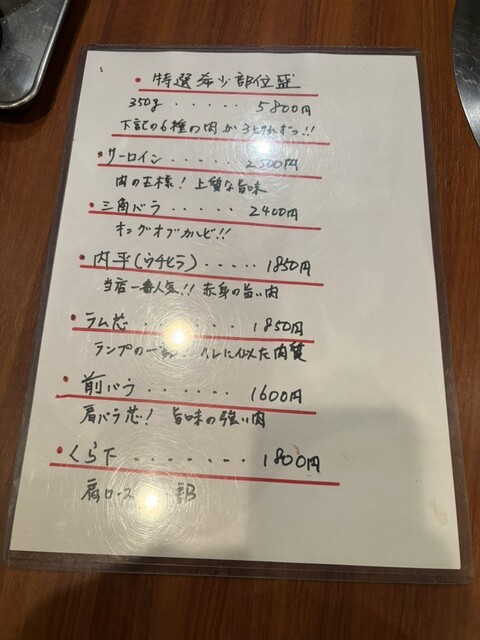 ・特選希少部位盛
350g ‥‥‥ 5800円
下記の6種の肉が3切れずつ!!
・サーロイン ‥‥‥ 2500円
肉の王様! 上質な旨味
・三角バラ ‥‥‥ 2400円
キングオブカルビ!!
・内平(ウチヒラ) ‥‥‥ 1850円
当店一番人気!! 赤身の旨い肉
・ラム芯 ‥‥‥ 1850円
ランプの一 レに似た肉質
・前バラ ‥‥‥ 1600円
肩バラ芯! 旨味の強い肉
・くら下 ‥‥‥ 1800円
肩ロース 部